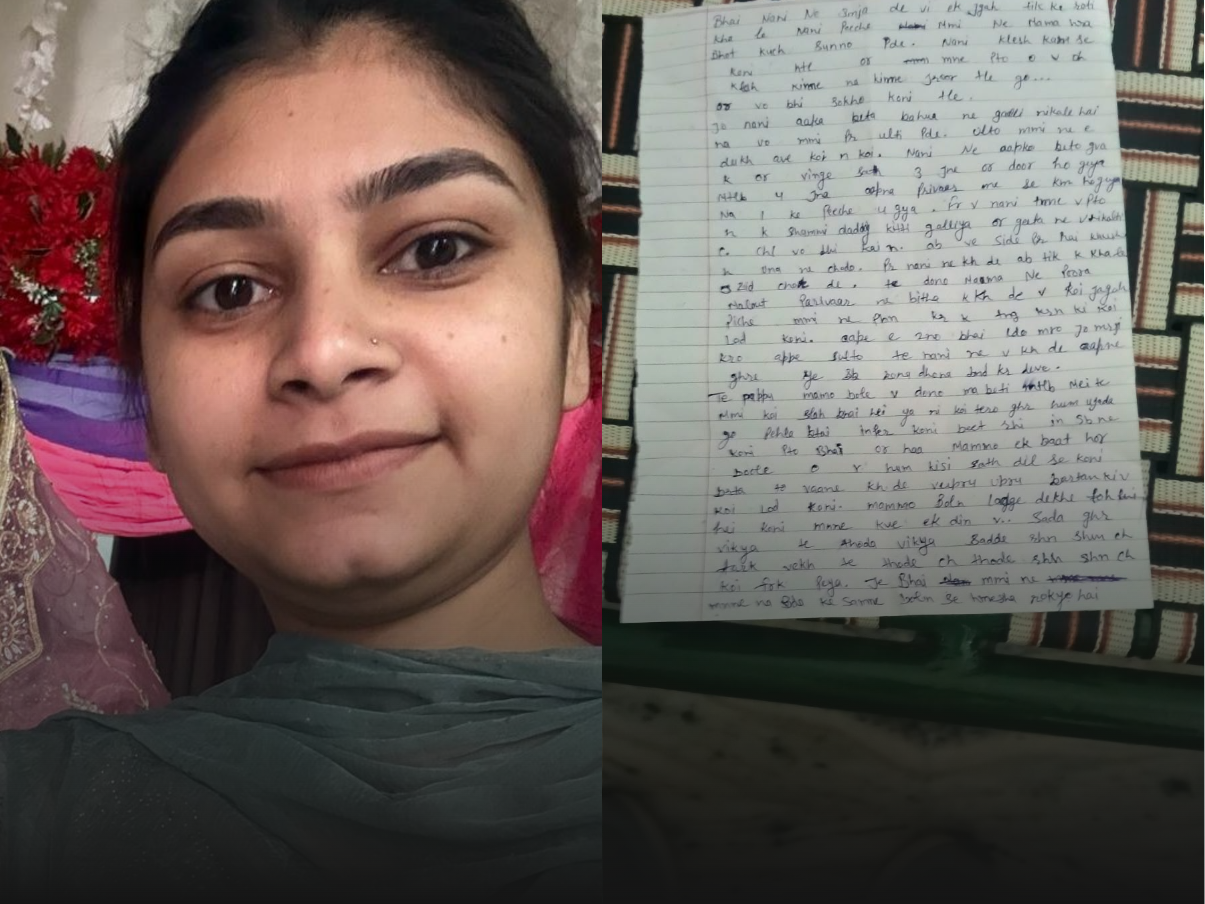 Bhai Nani Ne Smja de vi ek Jgah tik ke roti
kha le Nani Peeche Mmi Ne Mama hra
Bhot kuch Sunno Pde. Nani klesh karn se
koni htl or mne Pto o v ch
klesh kime na kime jroor tle go...
or vo bhi sokho koni tle.
Jo nani aaka beta bahua ne gaali nikale hai
na vo mmi Pr ulti Pde. ulto mmi ne e
dukh ave koi n koi. Nani Ne aapko beto gva
k or vinge sath 3 Jne or door ho gya
Mtlb 4 Jne aapne Privaar me se km ho gya
Na 1 ke Peeche u gya. Fr v nani tnne v Pto
n k Shammi daddy galliya or geeta ne v nikalti
C. Chl vo bhi koi n. ab ve side Pr hai
n una ne chodo. Pr nani ne kh de ab tik k kha le
Zid chod de. te dono Maama Ne Poora
Malout Parivaar ne bitha k kh de v koi jagah
Piche mmi ne Phn kr k tng krn ki koi
Lod koni. aape e 2no bhai ldo mro jo mrji
kro appe sulto te nani ne v kh de aapne
ghre ye sb kona dhona bnd kr deve.
Te pappu mamo bole v dono ma beti Mtlb Mei te
Mmi koi slah krai hei ya ni koi tero ghr hum ujada
go Pehle bhai infer koni beet rhi in sb ne
koni Pto Bhai or haa Mammo ek baat hor
boole o v hum kisi sath dil se koni
bata te vaane kh de veupru upru bartan ki v
koi Lod koni. mammo Boln lagge dekhe foh
hei koni mnne kue ek din v... Sada ghr
vikya te thoda vikya Sadde rhn shn ch
fark vekh le thode ch thode rhn shn ch
koi frk Peya. Je Bhai mmi ne
mnne na Bha ke samne boln se hmesha rokyo hai